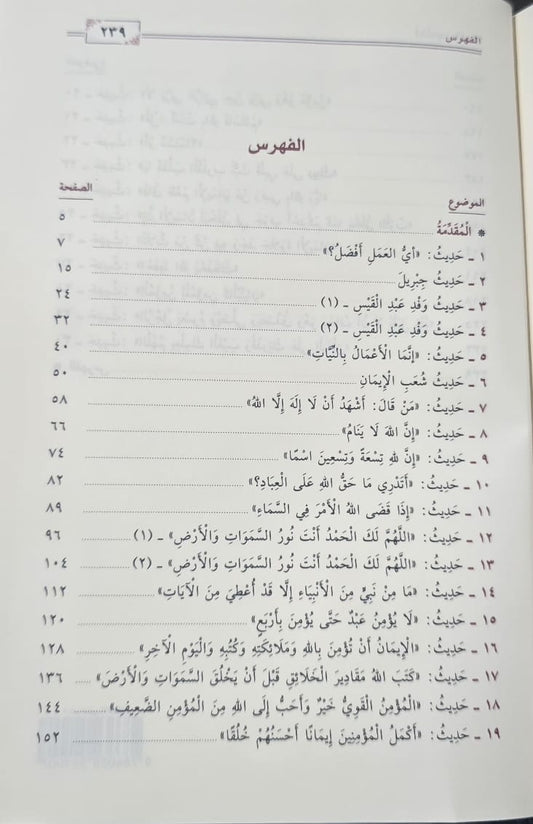 الفهرس ٢٣٩
الفهرس
الموضوع الصفحة
* الْمُقَدِّمَةُ ٥
١ ـ حَدِيثُ: «أَيُّ العَمَلِ أَفْضَلُ؟» ٧
٢ ـ حَدِيثُ جِبْرِيلَ ١٥
٣ ـ حَدِيثُ وَفْدِ عَبْدِ الْقَيْسِ ـ (١) ٢٤
٤ ـ حَدِيثُ وَفْدِ عَبْدِ الْقَيْسِ ـ (٢) ٣٢
٥ ـ حَدِيثُ: «إِنَّمَا الْأَعْمَالُ بِالنِّيَّاتِ» ٤٠
٦ ـ حَدِيثُ شُعَبِ الْإِيمَانِ ٥٠
٧ ـ حَدِيثُ: «مَنْ قَالَ: أَشْهَدُ أَنْ لَا إِلَهَ إِلَّا اللهُ» ٥٨
٨ ـ حَدِيثُ: «إِنَّ اللهَ لَا يَنَامُ» ٦٦
٩ ـ حَدِيثُ: «إِنَّ لِلهِ تِسْعَةً وَتِسْعِينَ اسْمًا» ٧٤
١٠ ـ حَدِيثُ: «أَتَدْرِي مَا حَقُّ اللهِ عَلَى الْعِبَادِ؟» ٨٢
١١ ـ حَدِيثُ: «إِذَا قَضَى اللهُ الْأَمْرَ فِي السَّمَاءِ» ٨٩
١٢ ـ حَدِيثُ: «اللَّهُمَّ لَكَ الْحَمْدُ أَنْتَ نُورُ السَّمَوَاتِ وَالْأَرْضِ» ـ (١) ٩٦
١٣ ـ حَدِيثُ: «اللَّهُمَّ لَكَ الْحَمْدُ أَنْتَ نُورُ السَّمَوَاتِ وَالْأَرْضِ» ـ (٢) ١٠٤
١٤ ـ حَدِيثُ: «مَا مِنْ نَبِيٍّ مِنَ الْأَنْبِيَاءِ إِلَّا قَدْ أُعْطِيَ مِنَ الْآيَاتِ» ١١٢
١٥ ـ حَدِيثُ: «لَا يُؤْمِنُ عَبْدٌ حَتَّى يُؤْمِنَ بِأَرْبَعٍ» ١٢٠
١٦ ـ حَدِيثُ: «الْإِيمَانُ أَنْ تُؤْمِنَ بِاللهِ وَمَلَائِكَتِهِ وَكُتُبِهِ وَالْيَوْمِ الْآخِرِ» ١٢٨
١٧ ـ حَدِيثُ: «كَتَبَ اللهُ مَقَادِيرَ الْخَلَائِقِ قَبْلَ أَنْ يَخْلُقَ السَّمَوَاتِ وَالْأَرْضَ» ١٣٦
١٨ ـ حَدِيثُ: «الْمُؤْمِنُ الْقَوِيُّ خَيْرٌ وَأَحَبُّ إِلَى اللهِ مِنَ الْمُؤْمِنِ الضَّعِيفِ» ١٤٤
١٩ ـ حَدِيثُ: «أَكْمَلُ الْمُؤْمِنِينَ إِيمَانًا أَحْسَنُهُمْ خُلُقًا» ١٥٢